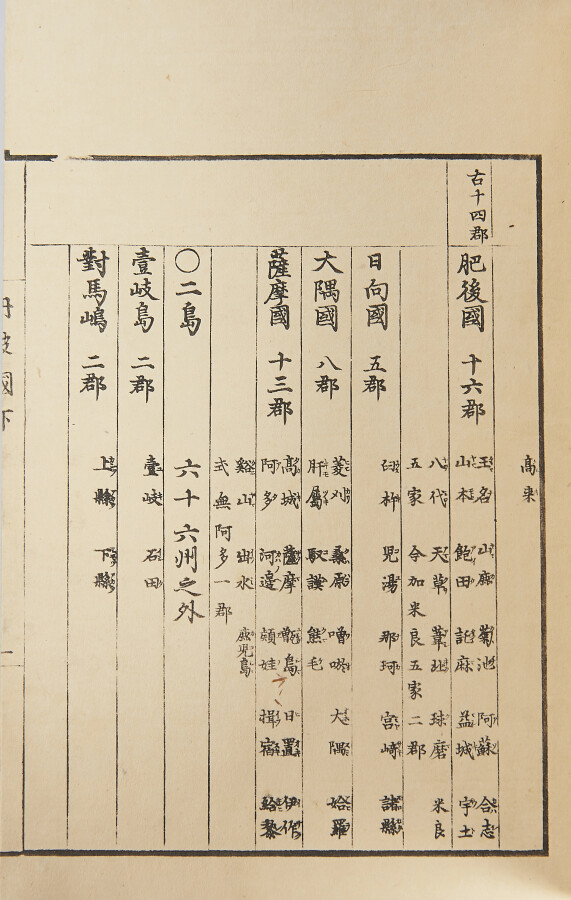 高来
右十四郡
肥後國 十六郡 玉名 山鹿 菊池 阿蘇 合志
山本 飽田 詫麻 益城 宇土
八代 天草 葦北 球磨 米良
五家 今加米良五家二郡
日向國 五郡 臼杵 児湯 那珂 宮崎 諸縣
大隅國 八郡 菱刈 桒原 噌唹 大隅 姶羅
肝属 馭謨 熊毛
薩摩國 十三郡 髙城 薩摩 甑島 日置 伊作
阿多 河邊 頴娃 揖宿 給黎
谿山 出水 鹿児島
式無阿多一郡
〇二島 六十六州之外
壹岐島 二郡 壹岐 石田
對馬嶋 二郡 上縣 下縣